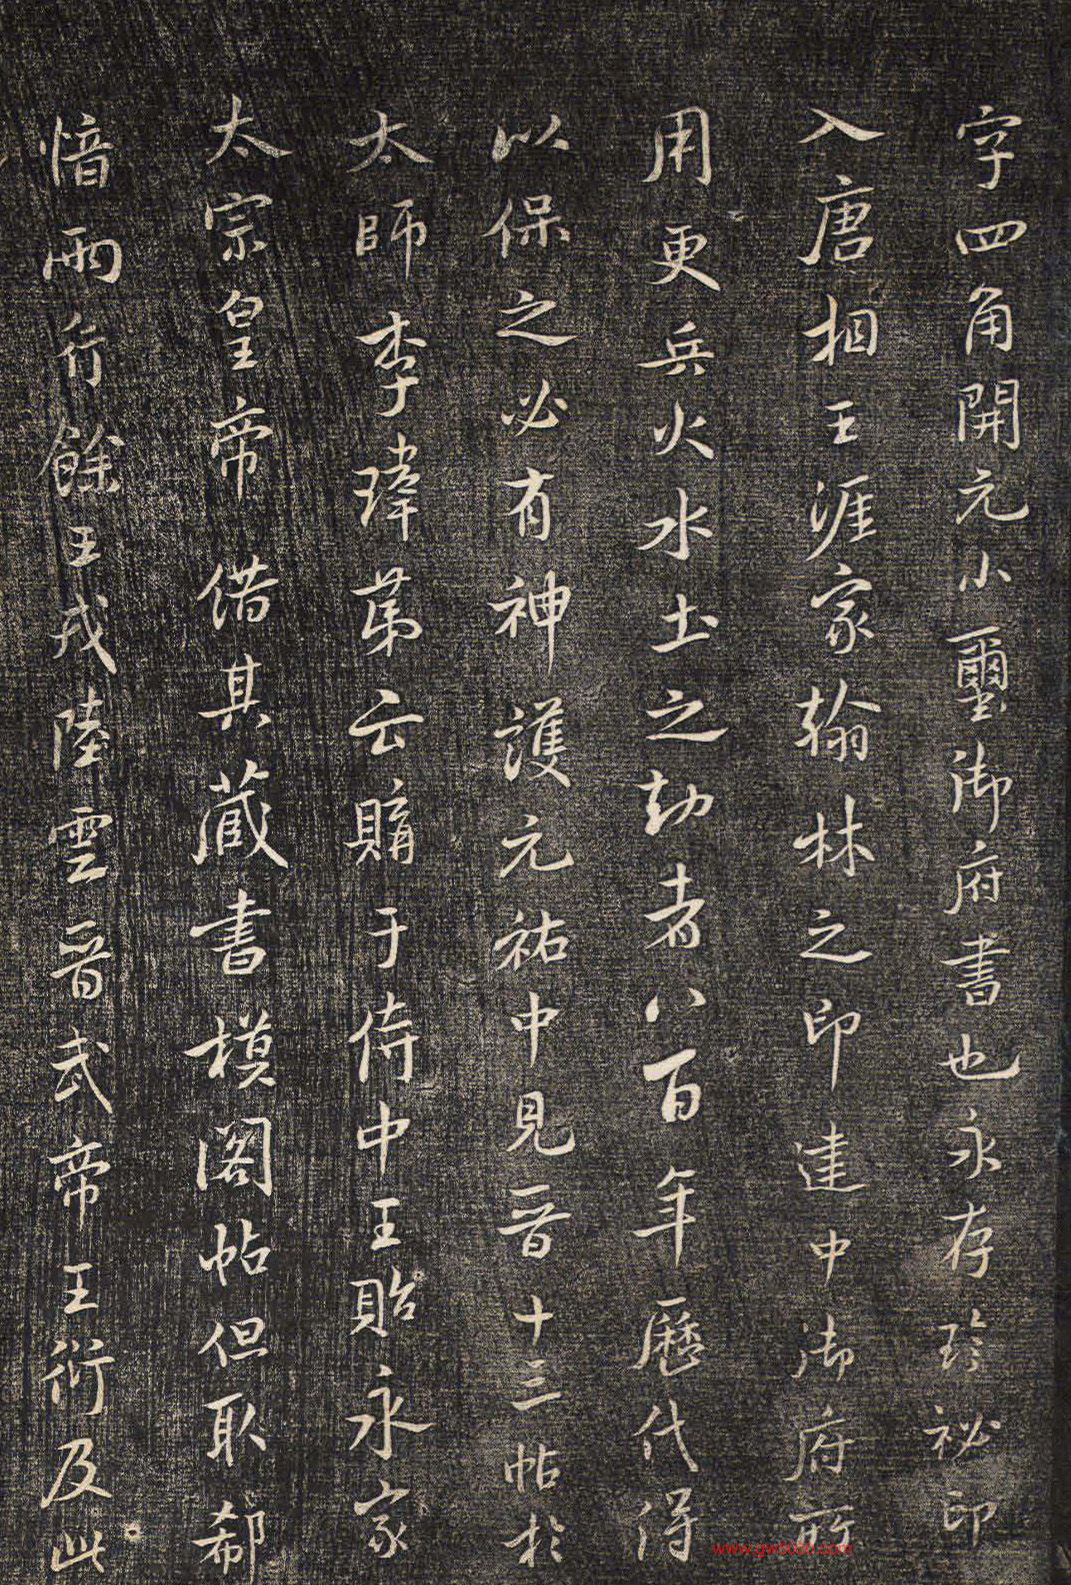 字四角開元小璽御府書也永存珍祕印
入唐相王涯家翰林之印建中御府所
用更兵火水土之劫者八百年歷代得
以保之必有神護元祐中見晉十三帖於
太師李瑋第云購于侍中王貽永家
太宗皇帝借其藏書模閣帖但取郗
愔兩行餘王戎陸雲晉武帝王衍及此